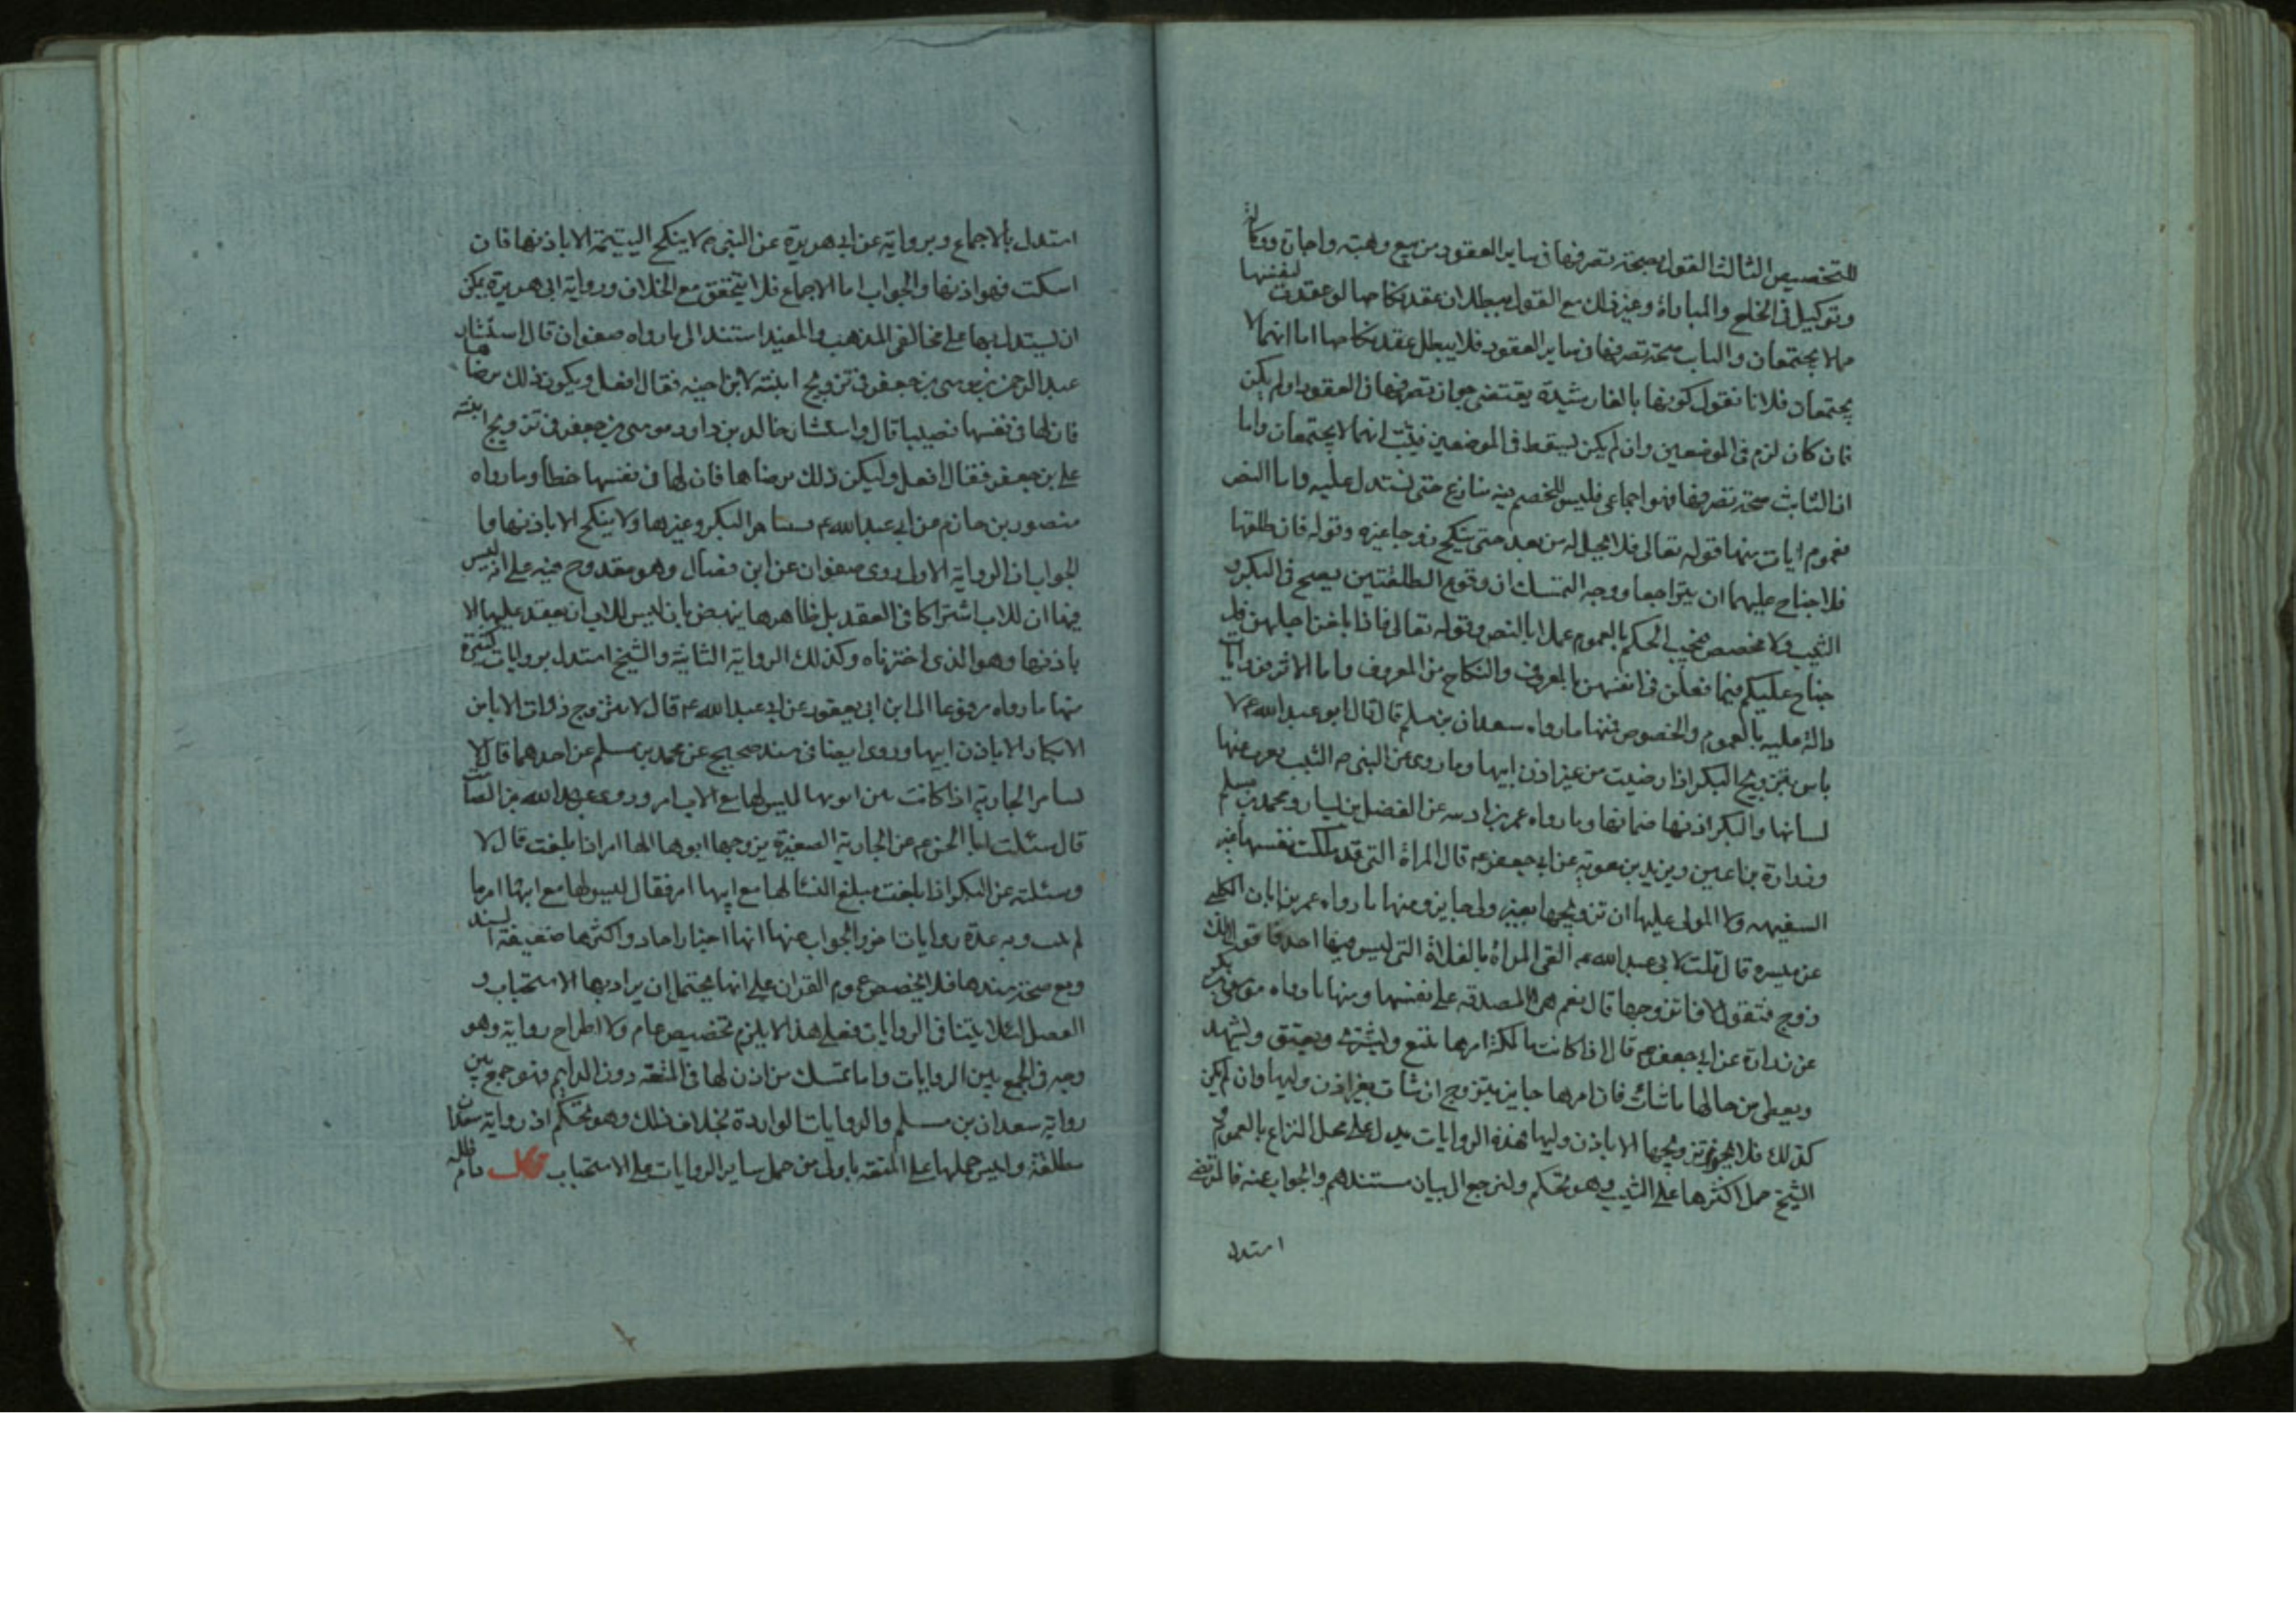 للتخصيص الثالث القول بصحة تصرفها في ساير العقود من بيع وهبة واجارة ووكالة
وتوكيل في الخلع والمباراة وغير ذلك مع القول ببطلان عقد نكاحها لو عقدت لنفسها
مما لا يجتمعان والثابت صحة تصرفها في ساير العقود فلا يبطل عقد نكاحها اما انهما لا
يجتمعان فلانا نقول كونها بالغة رشيدة يقتضي جواز تصرفها في العقود او لم يكن
فان كان لزم في الموضعين وان لم يكن ليسقط في الموضعين فثبت انهما لا يجتمعان واما
ان الثابت صحة تصرفها فهو اجماعي فليس للخصم فيه منازع حتى نستدل عليه واما النص
فعموم ايات منها قوله تعالى فلا تحل له من بعد حتى تنكح زوجا غيره وقوله فان طلقها
فلا جناح عليهما ان يتراجعا ووجه التمسك ان وقوع الطلقتين يصح في البكر و
الثيب ولا مخصص فيجب الحكم بالعموم عملا بالنص وقوله تعالى فاذا بلغن اجلهن فلا
جناح عليكم فيما فعلن في انفسهن بالمعروف والنكاح من المعروف واما الاثر فروايات
دالة عليه بالعموم والخصوص فمنها ما رواه سعدان بن مسلم قال قال ابو عبد الله ع لا
باس بتزويج البكر اذا رضيت من غير اذن ابيها وما روى عن النبي ص الثيب يعرب عنها
لسانها والبكر اذنها صماتها وما رواه عمر بن اذينه عن الفضيل بن يسار ومحمد بن مسلم
وزرارة بن اعين وبريد بن معوية عن ابي جعفر ع قال المراة التي قد ملكت نفسها غير
السفيهه ولا المولى عليها ان تزويجها بغير ولي جايز ومنها ما رواه عمر بن ابان الكلبي
عن ميسره قال قلت لابي عبد الله ع القى المراة بالفلاة التي ليس فيها احد فاقول لك
زوج فتقول لا فاتزوجها قال نعم هي المصدقه على نفسها ومنها ما رواه موسى بن بكر
عن زرارة عن ابي جعفر ع قال اذا كانت مالكة امرها تبيع وتشتري وتعتق وتشهد
وتعطي من مالها ما شاءت فان امرها جايز تتزوج ان شات بغير اذن وليها وان لم يكن
كذلك فلا يجوز تزويجها الا باذن وليها فهذه الروايات يدل على محل النزاع بالعموم و
الشيخ حمل اكثرها على الثيب وهو تحكم ولنرجع الى بيان مستندهم والجواب عنه فالمرتضى
استدل
استدل بالاجماع وبرواية عن ابي هريرة عن النبي ص لا ينكح اليتيمة الا باذنها فان
اسكت فهو اذنها والجواب اما الاجماع فلا يتحقق مع الخلاف ورواية ابي هريرة يمكن
ان يستدل بها على مخالفي المذهب والمفيد استند الى ما رواه صفوان قال استشار
عبد الرحمن بن موسى بن جعفر في تزويج ابنته لابن اخيه فقال افعل ويكون ذلك برضاها
فان لها في نفسها نصيبا قال واستشار خالد بن داود موسى بن جعفر في تزويج ابنته
علي بن جعفر فقال افعل وليكن ذلك برضاها فان لها في نفسها حظا وما رواه
منصور بن حازم عن ابي عبد الله ع تستامر البكر وغيرها ولا ينكح الا باذنها وا
لجواب ان الرواية الاولى روى صفوان عن ابن فضال وهو مقدوح فيه على انه ليس
فيها ان للاب اشتراكا في العقد بل ظاهرها ينهض بان ليس للاب ان يعقد عليها الا
باذنها وهو الذي اخترناه وكذلك الرواية الثانية والشيخ استدل بروايات كثيرة
منها ما رواه مرفوعا الى ابن ابي يعفور عن ابي عبد الله ع قال لا تتزوج ذوات الاباء من
الابكار الا باذن ابيها وروى ايضا في سند صحيح عن محمد بن مسلم عن احدهما قال لا
تستامر الجارية اذا كانت بين ابويها ليس لها مع الاب امر وروى عبد الله بن الصلت
قال سئلت ابا الحسن ع عن الجارية الصغيرة يزوجها ابوها الها امر اذا بلغت قال لا
وسئلته عن البكر اذا بلغت مبلغ النسا الها مع ابيها امر فقال ليس لها مع ابيها امر ما
لم تثيب وبه عدة روايات اخر والجواب عنها انها اخبار احاد واكثرها ضعيفة السند
ومع صحة سندها فلا يخصص عموم القران على انها يحتمل ان يراد بها الاستحباب و
الفضل لئلا يتنافى الروايات فعلى هذا لا يلزم تخصيص عام ولا اطراح رواية وهو
وجه في الجمع بين الروايات واما تمسك من اذن لها في المتعة دون الدايم فهو جمع بين
رواية سعدان بن مسلم والروايات الواردة بخلاف ذلك وهو تحكم اذ رواية سعدان
مطلقة وليس حملها على المتعة باولى من حمل ساير الروايات على الاستحباب قال دام ظله